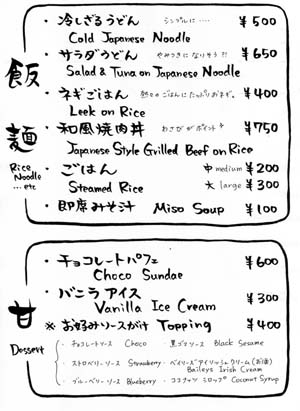 飯
麺
Rice
Noodle
...etc
・冷しざるうどん シンプルに…. ¥500
Cold Japanese Noodle
・サラダうどん やみつきになりそう?! ¥650
Salad & Tuna on Japanese Noodle
・ネギごはん 熱々のごはんにたっぷりおネギ。 ¥400
Leek on Rice
・和風焼肉丼 わさびがポイント ¥750
Japanese Style Grilled Beef on Rice
・ごはん 中 medium ¥200
Steamed Rice 大 large ¥300
・即席みそ汁 Miso Soup ¥100
甘
Dessert
・チョコレートパフェ ¥600
Choco Sundae
・バニラアイス ¥300
Vanilla Ice Cream
※お好みソースがけ Topping ¥400
・チョコレートソース Choco ・黒ゴマソース Black Sesame
・ストロベリーソース Strawberry ・ベイリーズアイリッシュクリーム(お酒)
Baileys Irish Cream
・ブルーベリーソース Blueberry ・ココナッツシロップ Coconut Syrup